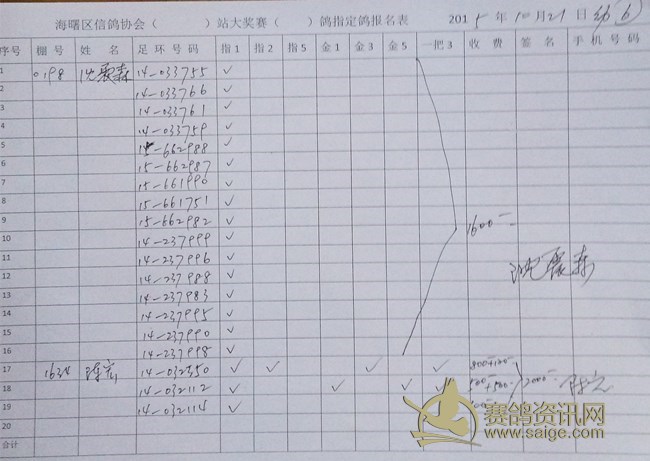 海曙区信鸽协会（ ）站大奖赛（ ）鸽指定鸽报名表 2015年10月21日
序号 棚号 姓名 足环号码 指1 指2 指5 金1 金3 金5 一把3 收费 签名 手机号码
1 0198 沈聚森 14-033755 ✓
2 14-033766 ✓
3 14-033761 ✓
4 14-033759 ✓
5 15-662988 ✓
6 15-662987 ✓
7 15-661990 ✓
8 15-661751 ✓
9 15-662982 ✓ 1600-
10 14-237999 ✓
11 14-237996 ✓
12 14-237988 ✓ 沈聚森
13 14-237983 ✓
14 14-237995 ✓
15 14-237990 ✓
16 14-237998 ✓
17 1634 陈宏 14-032350 ✓ ✓ ✓ ✓
18 14-032112 ✓ ✓ ✓ ✓ 500+500- 2000- 陈宏
19 14-032114 ✓
20
合计
赛鸽资讯网
www.saige.com